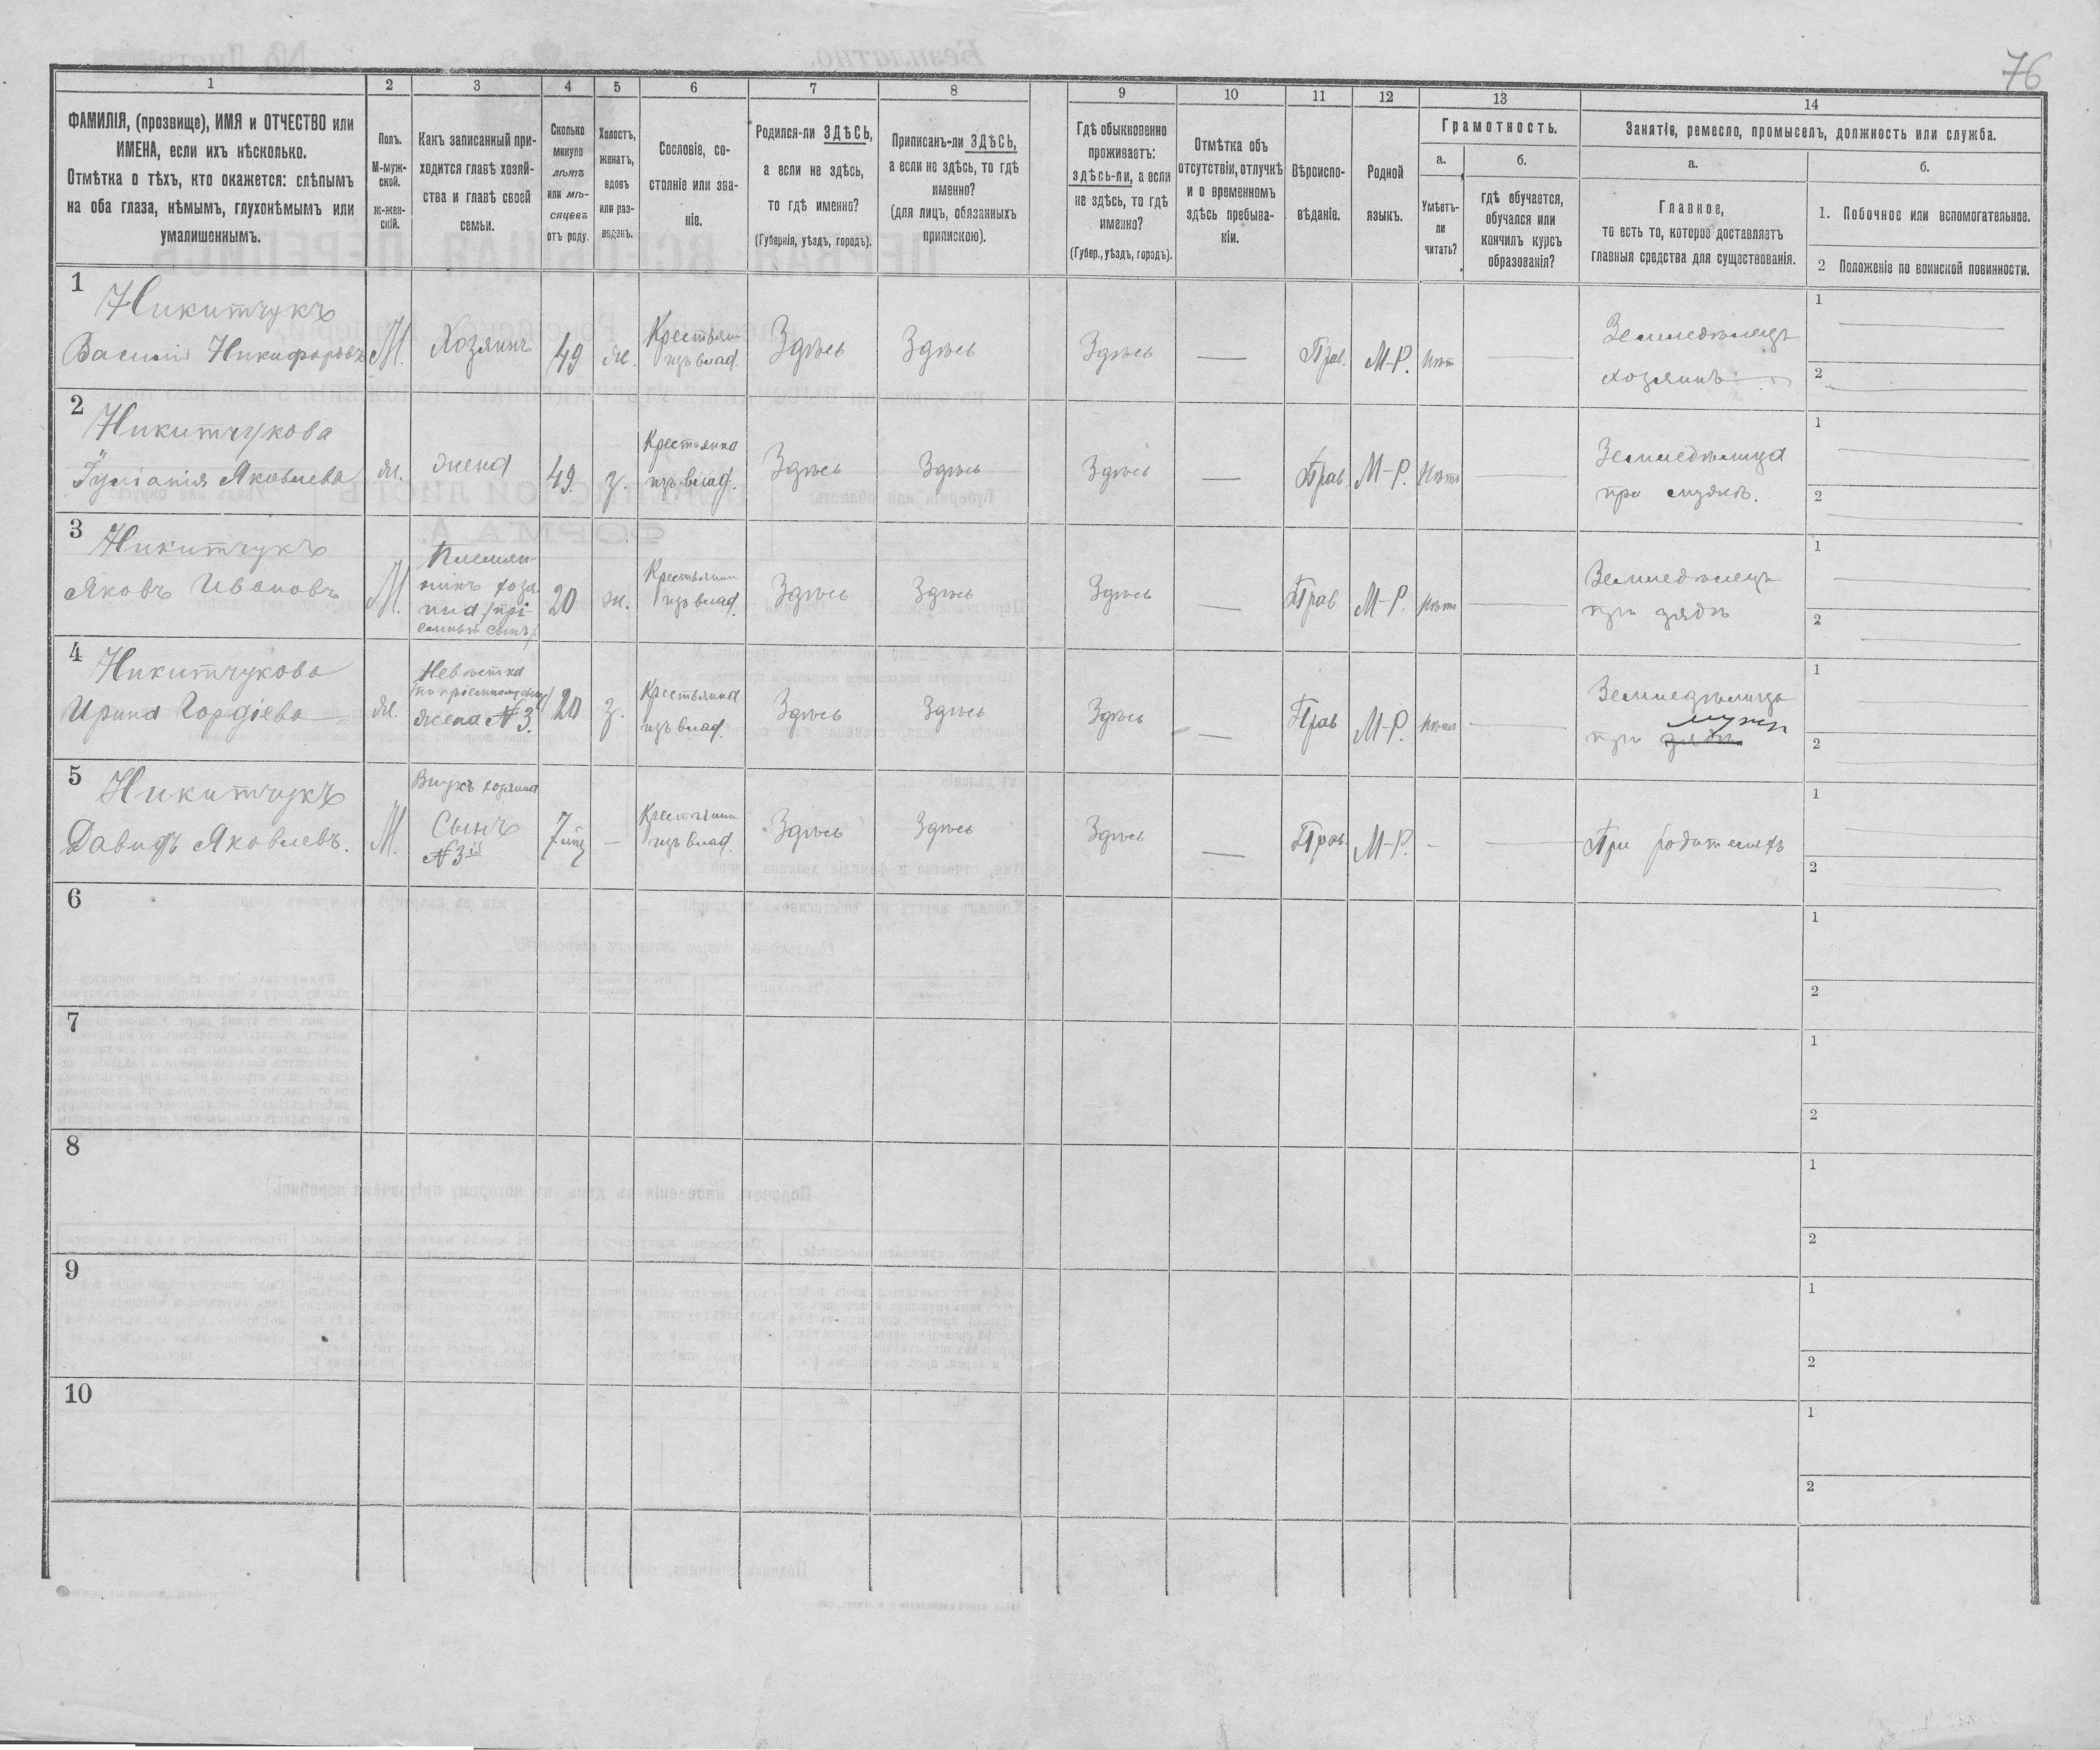 76
1
2
3
4
5
6
7
8
9
10
11
12
13
14
ФАМИЛІЯ, (прозвище), ИМЯ и ОТЧЕСТВО или
ИМЕНА, если ихъ нѣсколько.
Отмѣтка о тѣхъ, кто окажется: слѣпымъ
на оба глаза, нѣмымъ, глухонѣмымъ или
умалишеннымъ.
Полъ.
М-муж-
ской.
Ж-жен-
скій.
Какъ записанный при-
ходится главѣ хозяй-
ства и главѣ своей
семьи.
Сколько
минуло
лѣтъ
или мѣ-
сяцевъ
отъ роду.
Холостъ,
женатъ,
вдовъ
или раз-
веденъ.
Сословіе, со-
стояніе или зва-
ніе.
Родился-ли ЗДѢСЬ,
а если не здѣсь,
то гдѣ именно?
(Губернія, уѣздъ, городъ).
Приписанъ-ли ЗДѢСЬ,
а если не здѣсь, то гдѣ
именно?
(для лицъ, обязанныхъ
припискою).
Гдѣ обыкновенно
проживаетъ:
здѣсь-ли, а если
не здѣсь, то гдѣ
именно?
(Губер., уѣздъ, городъ).
Отмѣтка объ
отсутствіи, отлучкѣ
и о временномъ
здѣсь пребыва-
ніи.
Вѣроиспо-
вѣданіе.
Родной
языкъ.
Грамотность.
а.
Умѣетъ-
ли
читать?
б.
гдѣ обучается,
обучался или
кончилъ курсъ
образованія?
Занятіе, ремесло, промыселъ, должность или служба.
а.
Главное,
то есть то, которое доставляетъ
главныя средства для существованія.
б.
1. Побочное или вспомогательное.
2 Положеніе по воинской повинности.
1
Никитчукъ
Василій Никифоровъ
М.
Хозяинъ
49
ж.
Крестьян
изъ влад.
Здѣсь
Здѣсь
Здѣсь
—
Прав.
М-Р.
Нѣт
Земледѣлецъ
хозяинъ
1
2
2
Никитчукова
Іуліанія Яковлева
Ж.
жена
49.
з.
Крестьянка
изъ влад.
Здѣсь
Здѣсь
Здѣсь
—
Прав.
М-Р.
Нѣтъ
Земледѣлица
при мужѣ.
1
2
3
Никитчукъ
Яковъ Ивановъ
М.
Племян-
никъ хозя
ина /прі-
емный сынъ/
20
ж.
Крестьянин
изъ влад.
Здѣсь
Здѣсь
Здѣсь
—
Прав
М-Р.
Нѣтъ
Земледѣлецъ
при дядѣ
1
2
4
Никитчукова
Ирина Гордіева
Ж.
Невѣстка
/по пріемному сыну/
жена №3.
20
з.
Крестьянка
изъ влад.
Здѣсь
Здѣсь
Здѣсь
—
Прав
М-Р.
Нѣтъ
Земледѣлица
мужѣ
при дядѣ
1
2
5
Никитчукъ
Давидъ Яковлевъ.
М.
Внукъ хозяина
Сынъ
№3й
7 мц
—
Крестьянин
изъ влад.
Здѣсь
Здѣсь
Здѣсь
—
Прав.
М-Р.
-
При родителяхъ
1
2
6
1
2
7
1
2
8
1
2
9
1
2
10
1
2